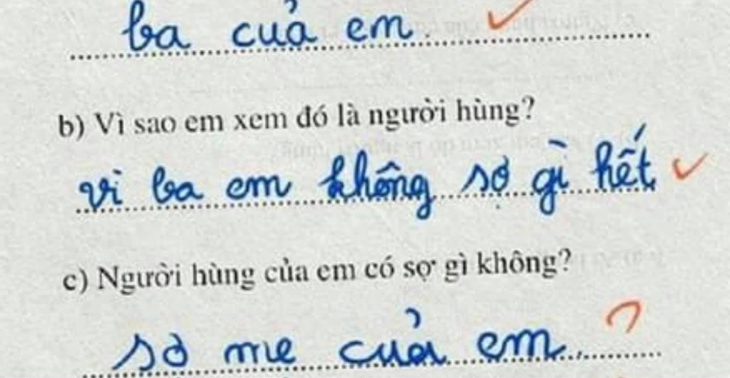 ba cuả em
b) Vì sao em xem đó là người hùng?
vì ba em không sợ gì hết
c) Người hùng của em có sợ gì không?
sợ mẹ cuả em.